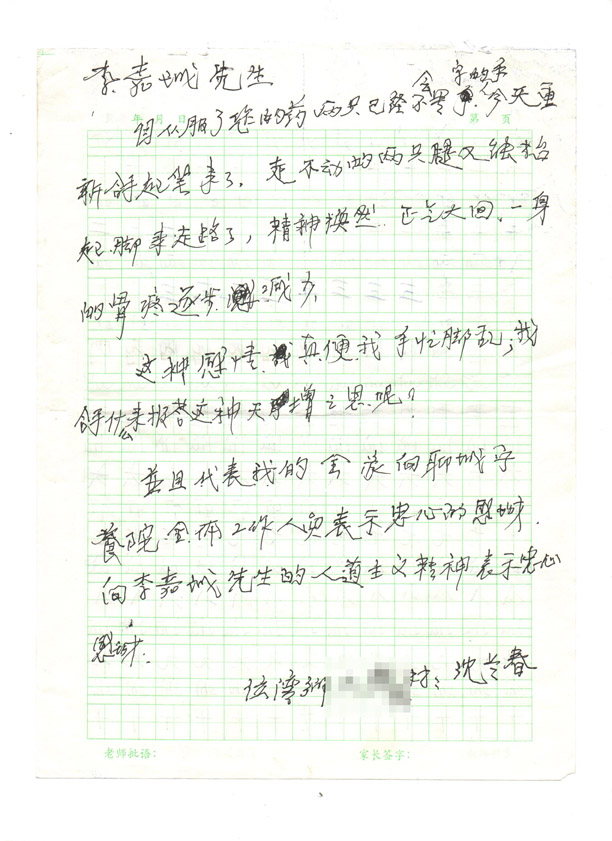 李嘉诚先生
年 月 日 第 页
会 字的手
自从服了您的药两只已经不写了.今天重
新拿起笔来了，走不动的两只腿又能抬
起脚来走路了，精神焕然.正气大回.一身
的骨疼逐步减少.
这种感情.真使我手忙脚乱;我
拿什么来报答这种天增之恩呢?
并且代表我的全家向聊城
养院全体工作人员表示忠心的感谢.
向李嘉诚先生的人道主义精神表示忠心
感谢.
村: 沈兰春
老师批语: 家长签字: